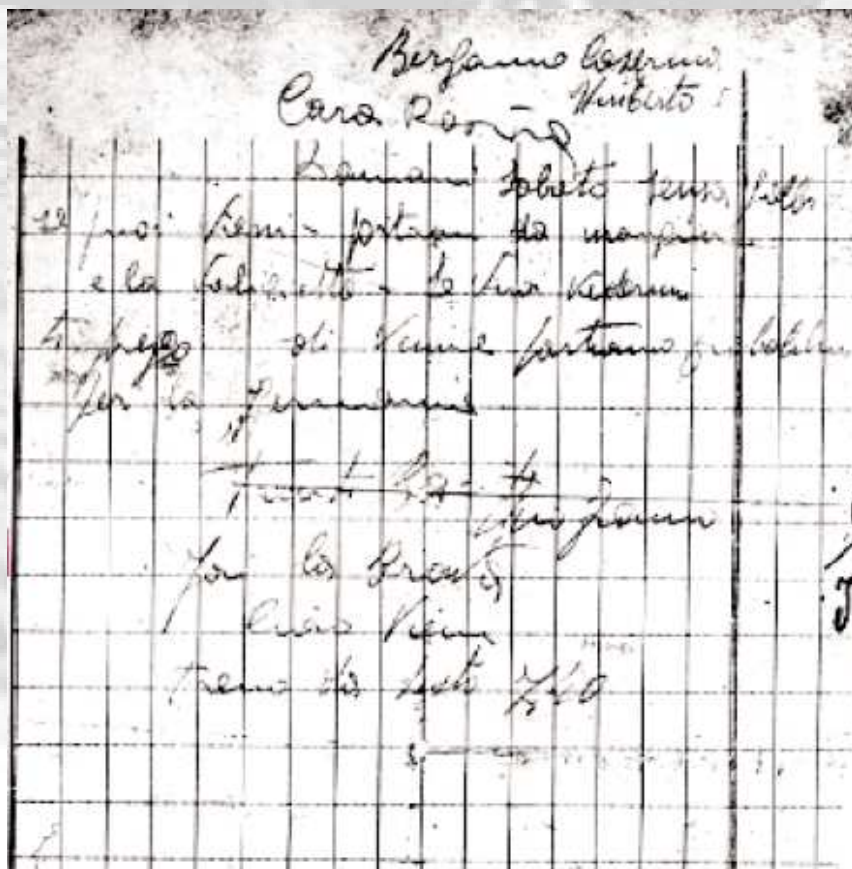 Bergamo Caserma
Umberto
Cara Rosina
Domani Sabato senza
se puoi vieni - portami da mangiare
e la - Se vuoi vedermi
ti prego di venire partiamo
per la Germania
Tanti Baci tuo
fai la brava
Ciao Vieni
treno da Sesto 7,40